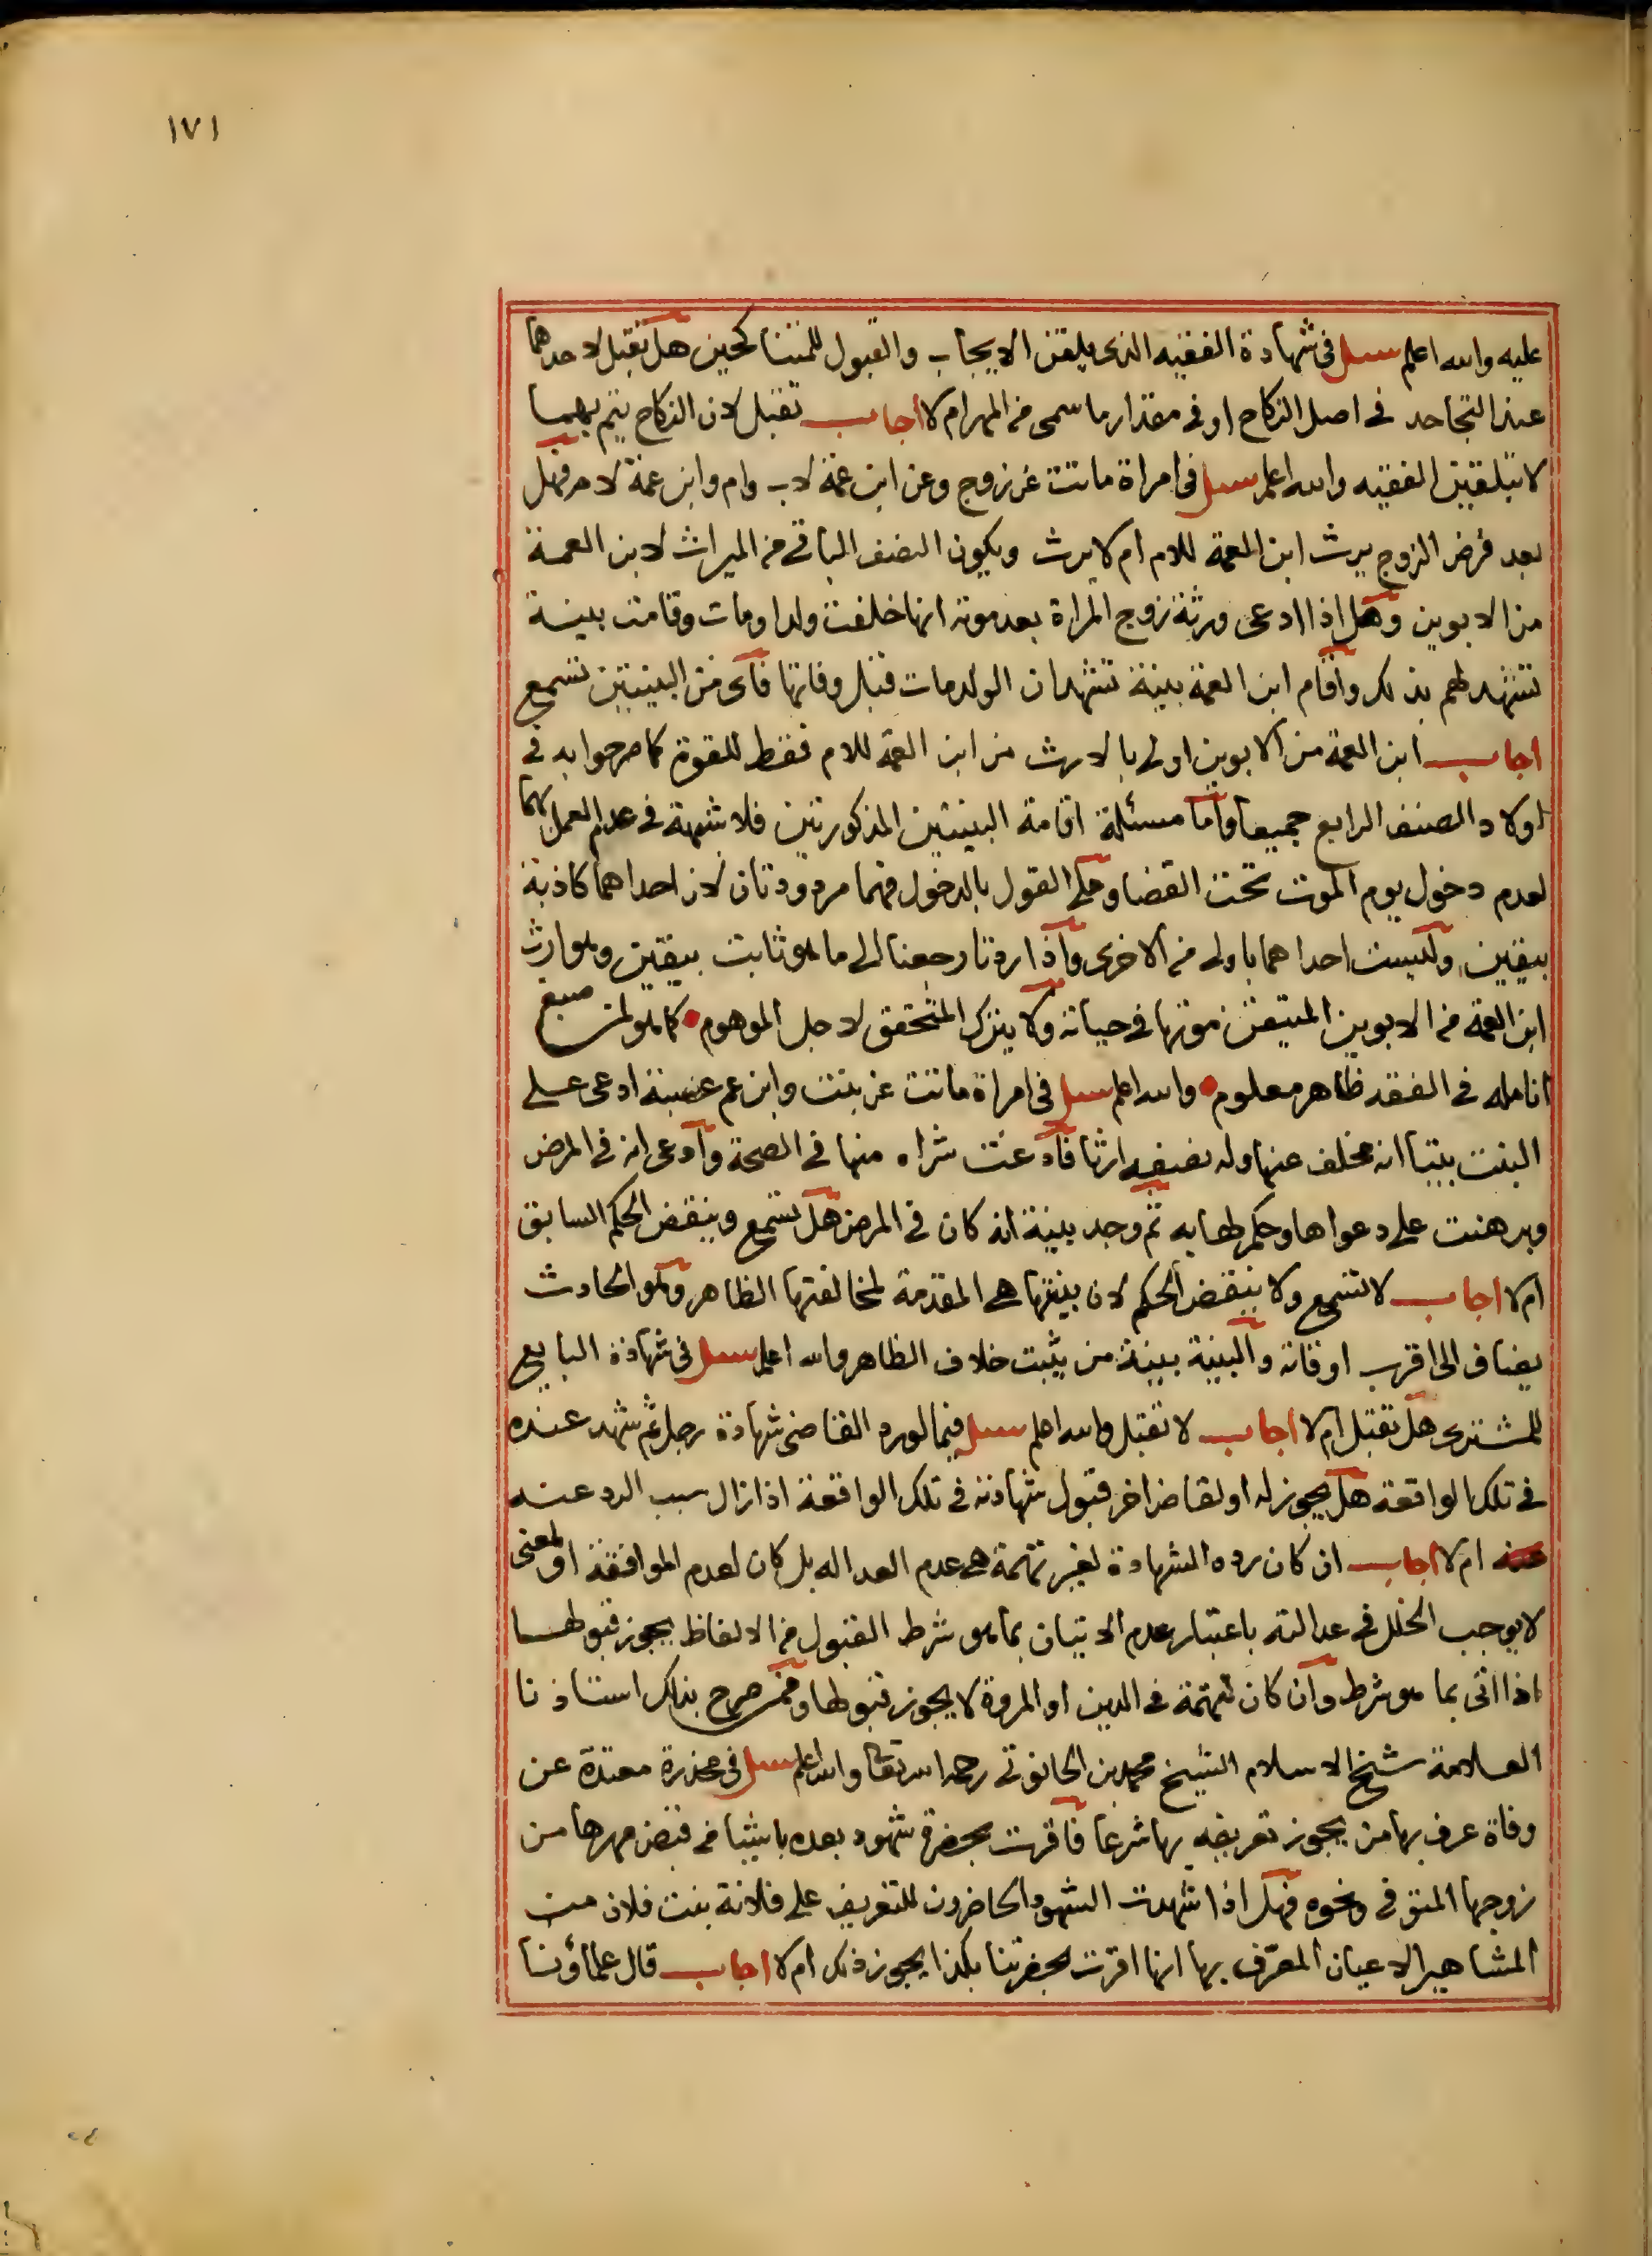 ١٧١
عليه والله اعلم سئل فى شهادة الفقيه الذى يلقن الايجاب والقبول للمتناكحين هل تقبل لاحدهما
عند التجاحد فى اصل النكاح او فى مقدار ما سمى من المهر ام لا اجاب تقبل لان النكاح يتم بهما
لا بتلقين الفقيه والله اعلم سئل فى امراة ماتت عن زوج وعن ابن عمة لاب وام وابن عمة لام فهل
بعد فرض الزوج يرث ابن العمة للام ام لا يرث ويكون النصف الباقى من الميراث لابن العمة
من الابوين وهل اذا ادعى ورثة زوج المراة بعد موته انها خلفت ولدا ومات وقامت بينة
تشهد لهم بذلك واقام ابن العمة بينة تشهد ان الولد مات قبل وفاتها فاى من البينتين تسمع
اجاب ابن العمة من الابوين اولى بالارث من ابن العمة للام فقط للقوة كما صرحوا به فى
اولاد الصنف الرابع جميعا واما مسئلة اقامة البينتين المذكورتين فلا شبهة فى عدم العمل بهما
لعدم دخول يوم الموت تحت القضا وعلى القول بالدخول فهما مردودتان لان احداهما كاذبة
بيقين وليست احداهما باولى من الاخرى واذا ردتا رجعنا الى ما هو ثابت بيقين وهو ارث
ابن العمة من الابوين المتيقن موتها فى حياته ولا يترك المتحقق لاجل الموهوم كما هو لمن صبغ
انامله فى الفقه ظاهر معلوم والله اعلم سئل فى امراة ماتت عن بنت وابن عم عصبة ادعى على
البنت بيتا انه مخلف عنها وله نصفه ارثا فادعت شراه منها فى الصحة وادعى انه فى المرض
وبرهنت على دعواها وحكم لها به ثم وجد بينة انه كان فى المرض هل تسمع وينقض الحكم السابق
ام لا اجاب لا تسمع ولا ينقض الحكم لان بينتها هى المقدمة لمخالفتها الظاهر وهو الحادث
يضاف الى اقرب اوقاته والبينة بينة من يثبت خلاف الظاهر والله اعلم سئل فى شهادة البايع
للمشترى هل تقبل ام لا اجاب لا تقبل والله اعلم سئل فيما لو رد القاضى شهادة رجل ثم شهد عنده
فى تلك الواقعة هل يجوز له او لقاض اخر قبول شهادته فى تلك الواقعة اذا زال سبب الرد عنه
عنه ام لا اجاب ان كان رده الشهادة لغير تهمة هى عدم العداله بل كان لعدم الموافقة او لمعنى
لا يوجب الخلل فى عدالته باعتبار عدم الاتيان بما هو شرط القبول من الالفاظ يجوز قبولها
اذا اتى بما هو شرط وان كان لتهمة فى الدين او المروة لا يجوز قبولها وممن صرح بذلك استاذنا
العلامة شيخ الاسلام الشيخ محمد بن الحانوتى رحمه الله تعا والله اعلم سئل فى مخدرة معتدة عن
وفاة عرف بها من يجوز تعريفه بها شرعا فاقرت بحضرة شهود بعده باشيا من قبض مهرها من
زوجها المتوفى ونحوه فهل اذا شهدت الشهود الحاضرون للتعريف على فلانة بنت فلان من
المشاهير الاعيان المعرف بها انها اقرت بحضرتنا بكذا يجوز ذلك ام لا اجاب قال علماؤنا